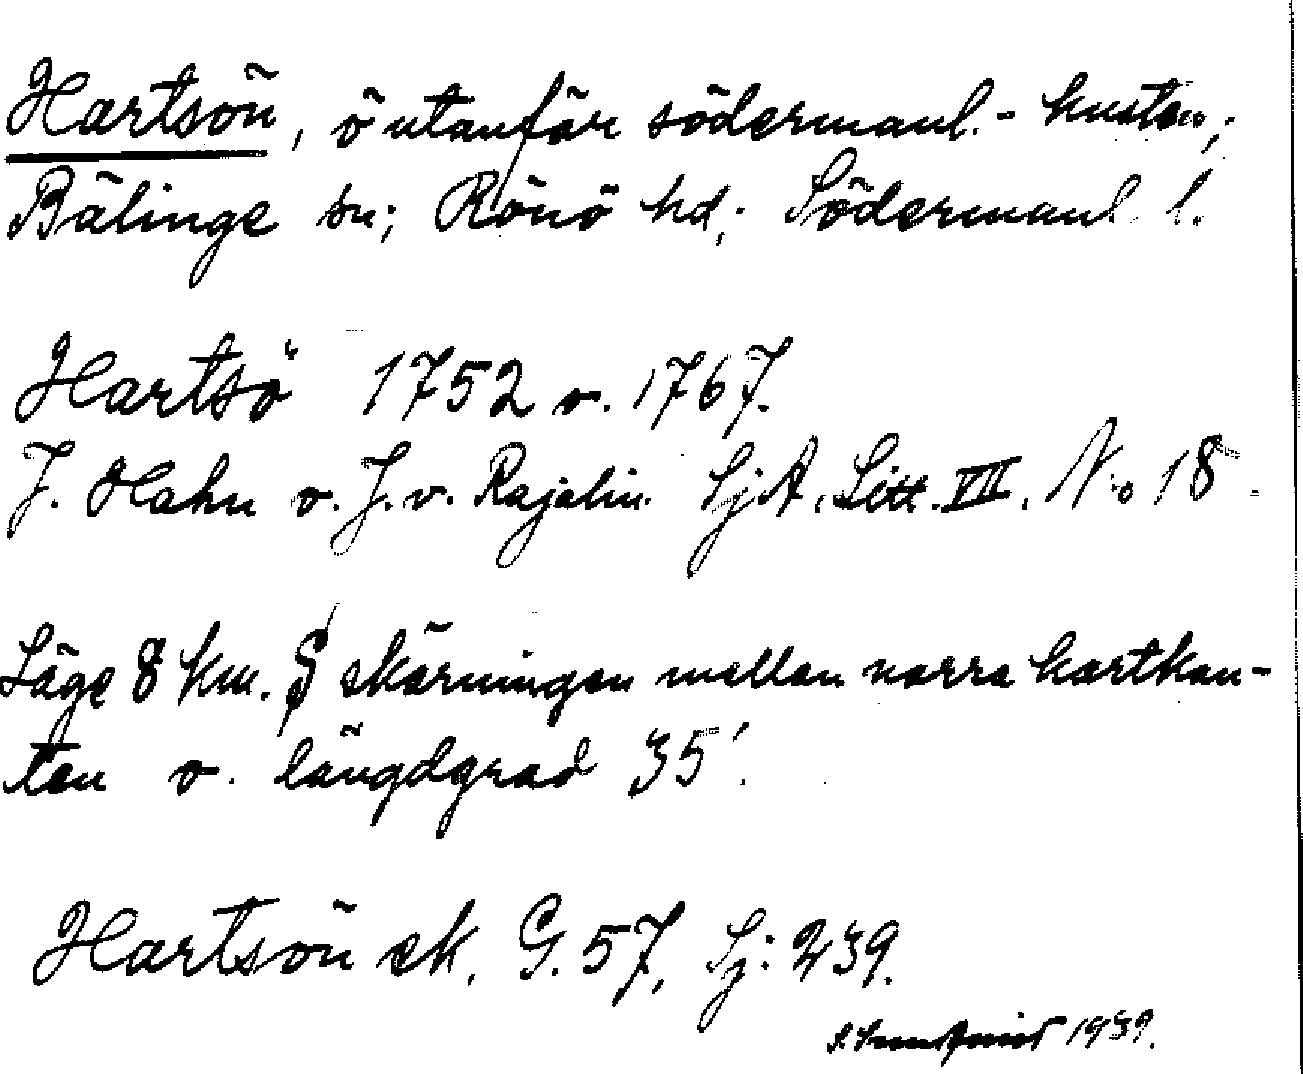 Hartsön, ö utanför södermanl.- kusten;
Bälinge sn; Rönö hd; Södermanl. l.
Hartsö 1752 o. 1767.
J. Hahn o. J. v. Rajalin. SjA. Litt. VII. No 18.
Läge 8 km. S skärningen mellan norra kartkan-
ten o. längdgrad 35'.
Hartsön ek. G. 57, Sj: 239.
1939.